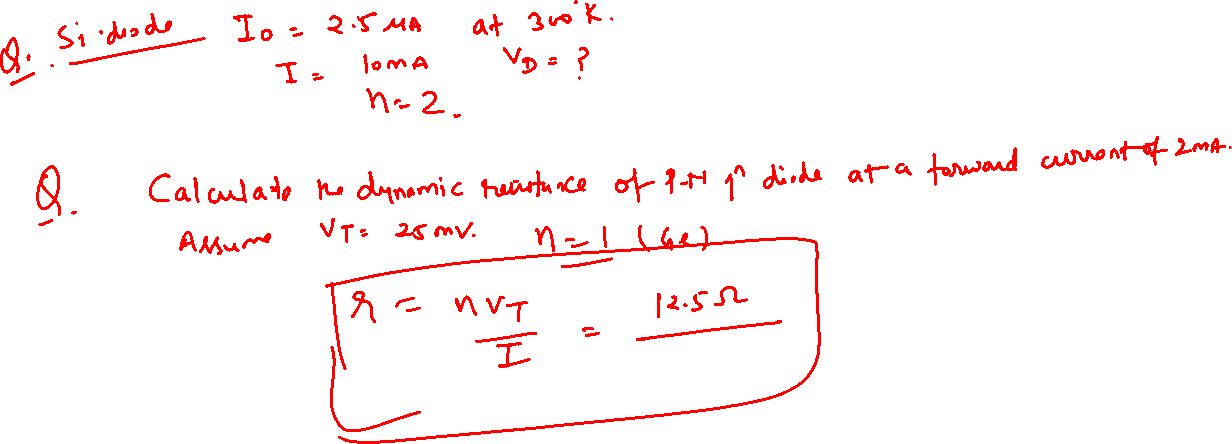 Q. Si diode I₀ = 2.5 μA at 300°K.
I = 10mA V_D = ?
η = 2.
Q. Calculate the dynamic resistance of P-N jn diode at a forward current of 2mA.
Assume V_T = 25mV. η = 1 (Ge)
r = ηV_T / I = 12.5Ω